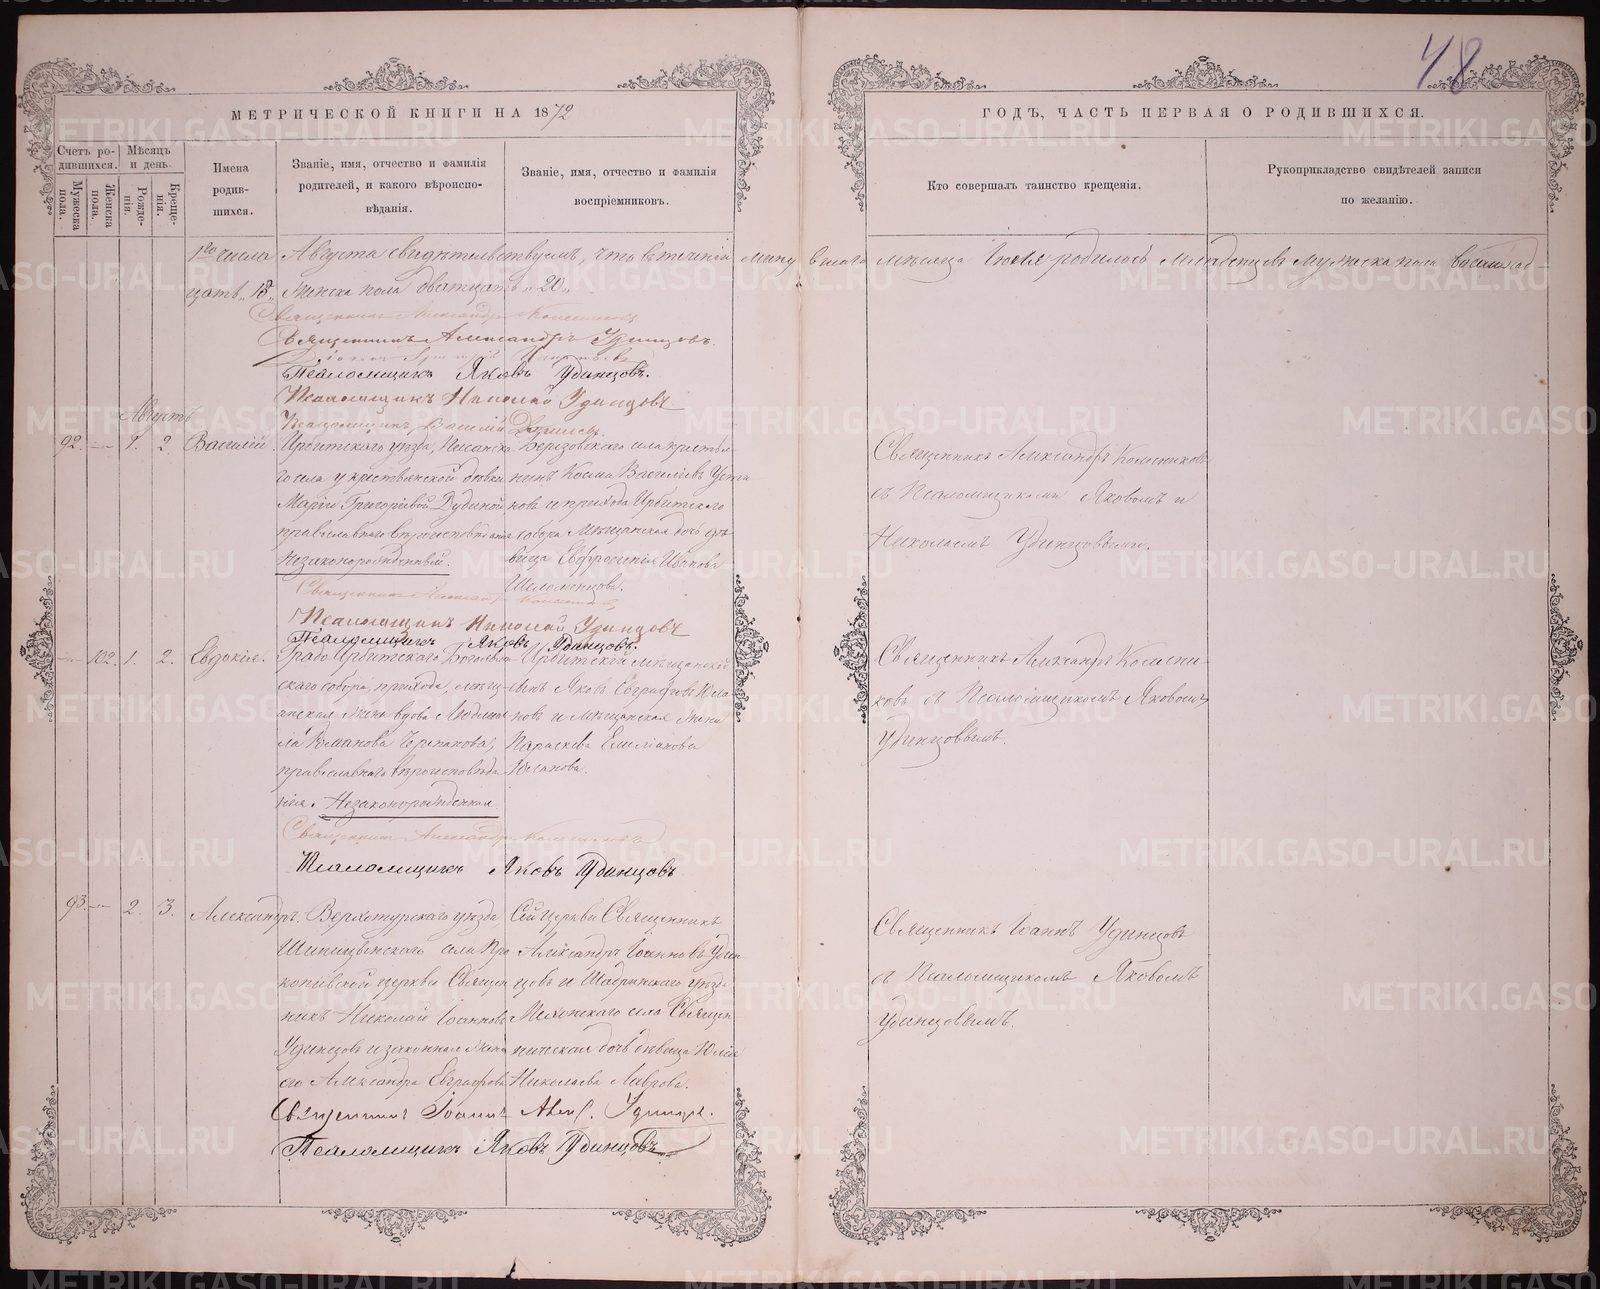 48
МЕТРИЧЕСКОЙ КНИГИ НА 1872
ГОДЪ, ЧАСТЬ ПЕРВАЯ О РОДИВШИХСЯ.
Счетъ родившихся.
Мужеска пола.
Женска пола.
Мѣсяцъ и день.
Рожденія.
Крещенія.
Имена родившихся.
Званіе, имя, отчество и фамилія родителей, и какого вѣроисповѣданія.
Званіе, имя, отчество и фамилія воспріемниковъ.
Кто совершалъ таинство крещенія.
Рукоприкладство свидѣтелей записи по желанію.
1го числа Августа свидѣтельствуемъ, что въ теченіи
мѣсяца Іюля родилось младенцевъ мужеска пола
цать „18„ Женска пола двадцать „20„
Священникъ Александръ Колесниковъ
Священникъ Александръ Удинцовъ.
Псаломщикъ Яковъ Удинцовъ.
Псаломщикъ Николай Удинцовъ
Псаломщикъ Василій
Августъ
92. — 1. 2. Василій.
Ирбитскаго уѣзда,
го села у крестьянской дѣвки
Маріи Григоріевой Рудиной
православнаго вѣроисповѣданія
незаконорожденный.
Березовскаго села крестья-
нинъ Косма Василіевъ Уста
новъ и прихода Ирбитскаго
собора Мѣщанская дочь дѣ-
вица Евфросинія Иванова
Шеломенцова.
Священникъ Александръ Колесниковъ
съ Псаломщиками Яковомъ и
Николаемъ Удинцовыми.
Священникъ Александръ Колесниковъ
Псаломщикъ Николай Удинцовъ
Псаломщикъ Яковъ Удинцовъ.
— 102. 1. 2. Евдокія.
Градо Ирбитскаго Богоявлен
скаго собора, прихода, мѣщ-
анская жена вдова Людмил
ла Романова
православнаго вѣроисповѣда
нія. Незаконорожденная
Ирбитскій мѣщанскій
сынъ Яковъ Евграфовъ Юла
новъ и мѣщанская жена
Параскева Емиліанова
Юланова.
Священникъ Александръ Колесни-
ковъ съ Псаломщикомъ Яковомъ
Удинцовымъ.
Священникъ Александръ Колесниковъ
Псаломщикъ Яковъ Удинцовъ
93. — 2. 3. Александръ.
Верхотурскаго уѣзда
Шипицынскаго села Про
копіевской церкви Священ
никъ Николай Іоанновъ
Удинцовъ и законная жена
его Александра Евграфова
Сей церкви Священникъ
Александръ Іоанновъ Удин
цовъ и Шадринскаго уѣзда
Мехонскаго села Священ-
ническая дочь дѣвица Юлія
Николаева Лаврова.
Священникъ Іоаннъ Удинцовъ
съ Псаломщикомъ Яковомъ
Удинцовымъ.
Священникъ Іоаннъ Алекс. Удинцовъ.
Псаломщикъ Яковъ Удинцовъ
METRIKI.GASO-URAL.RU